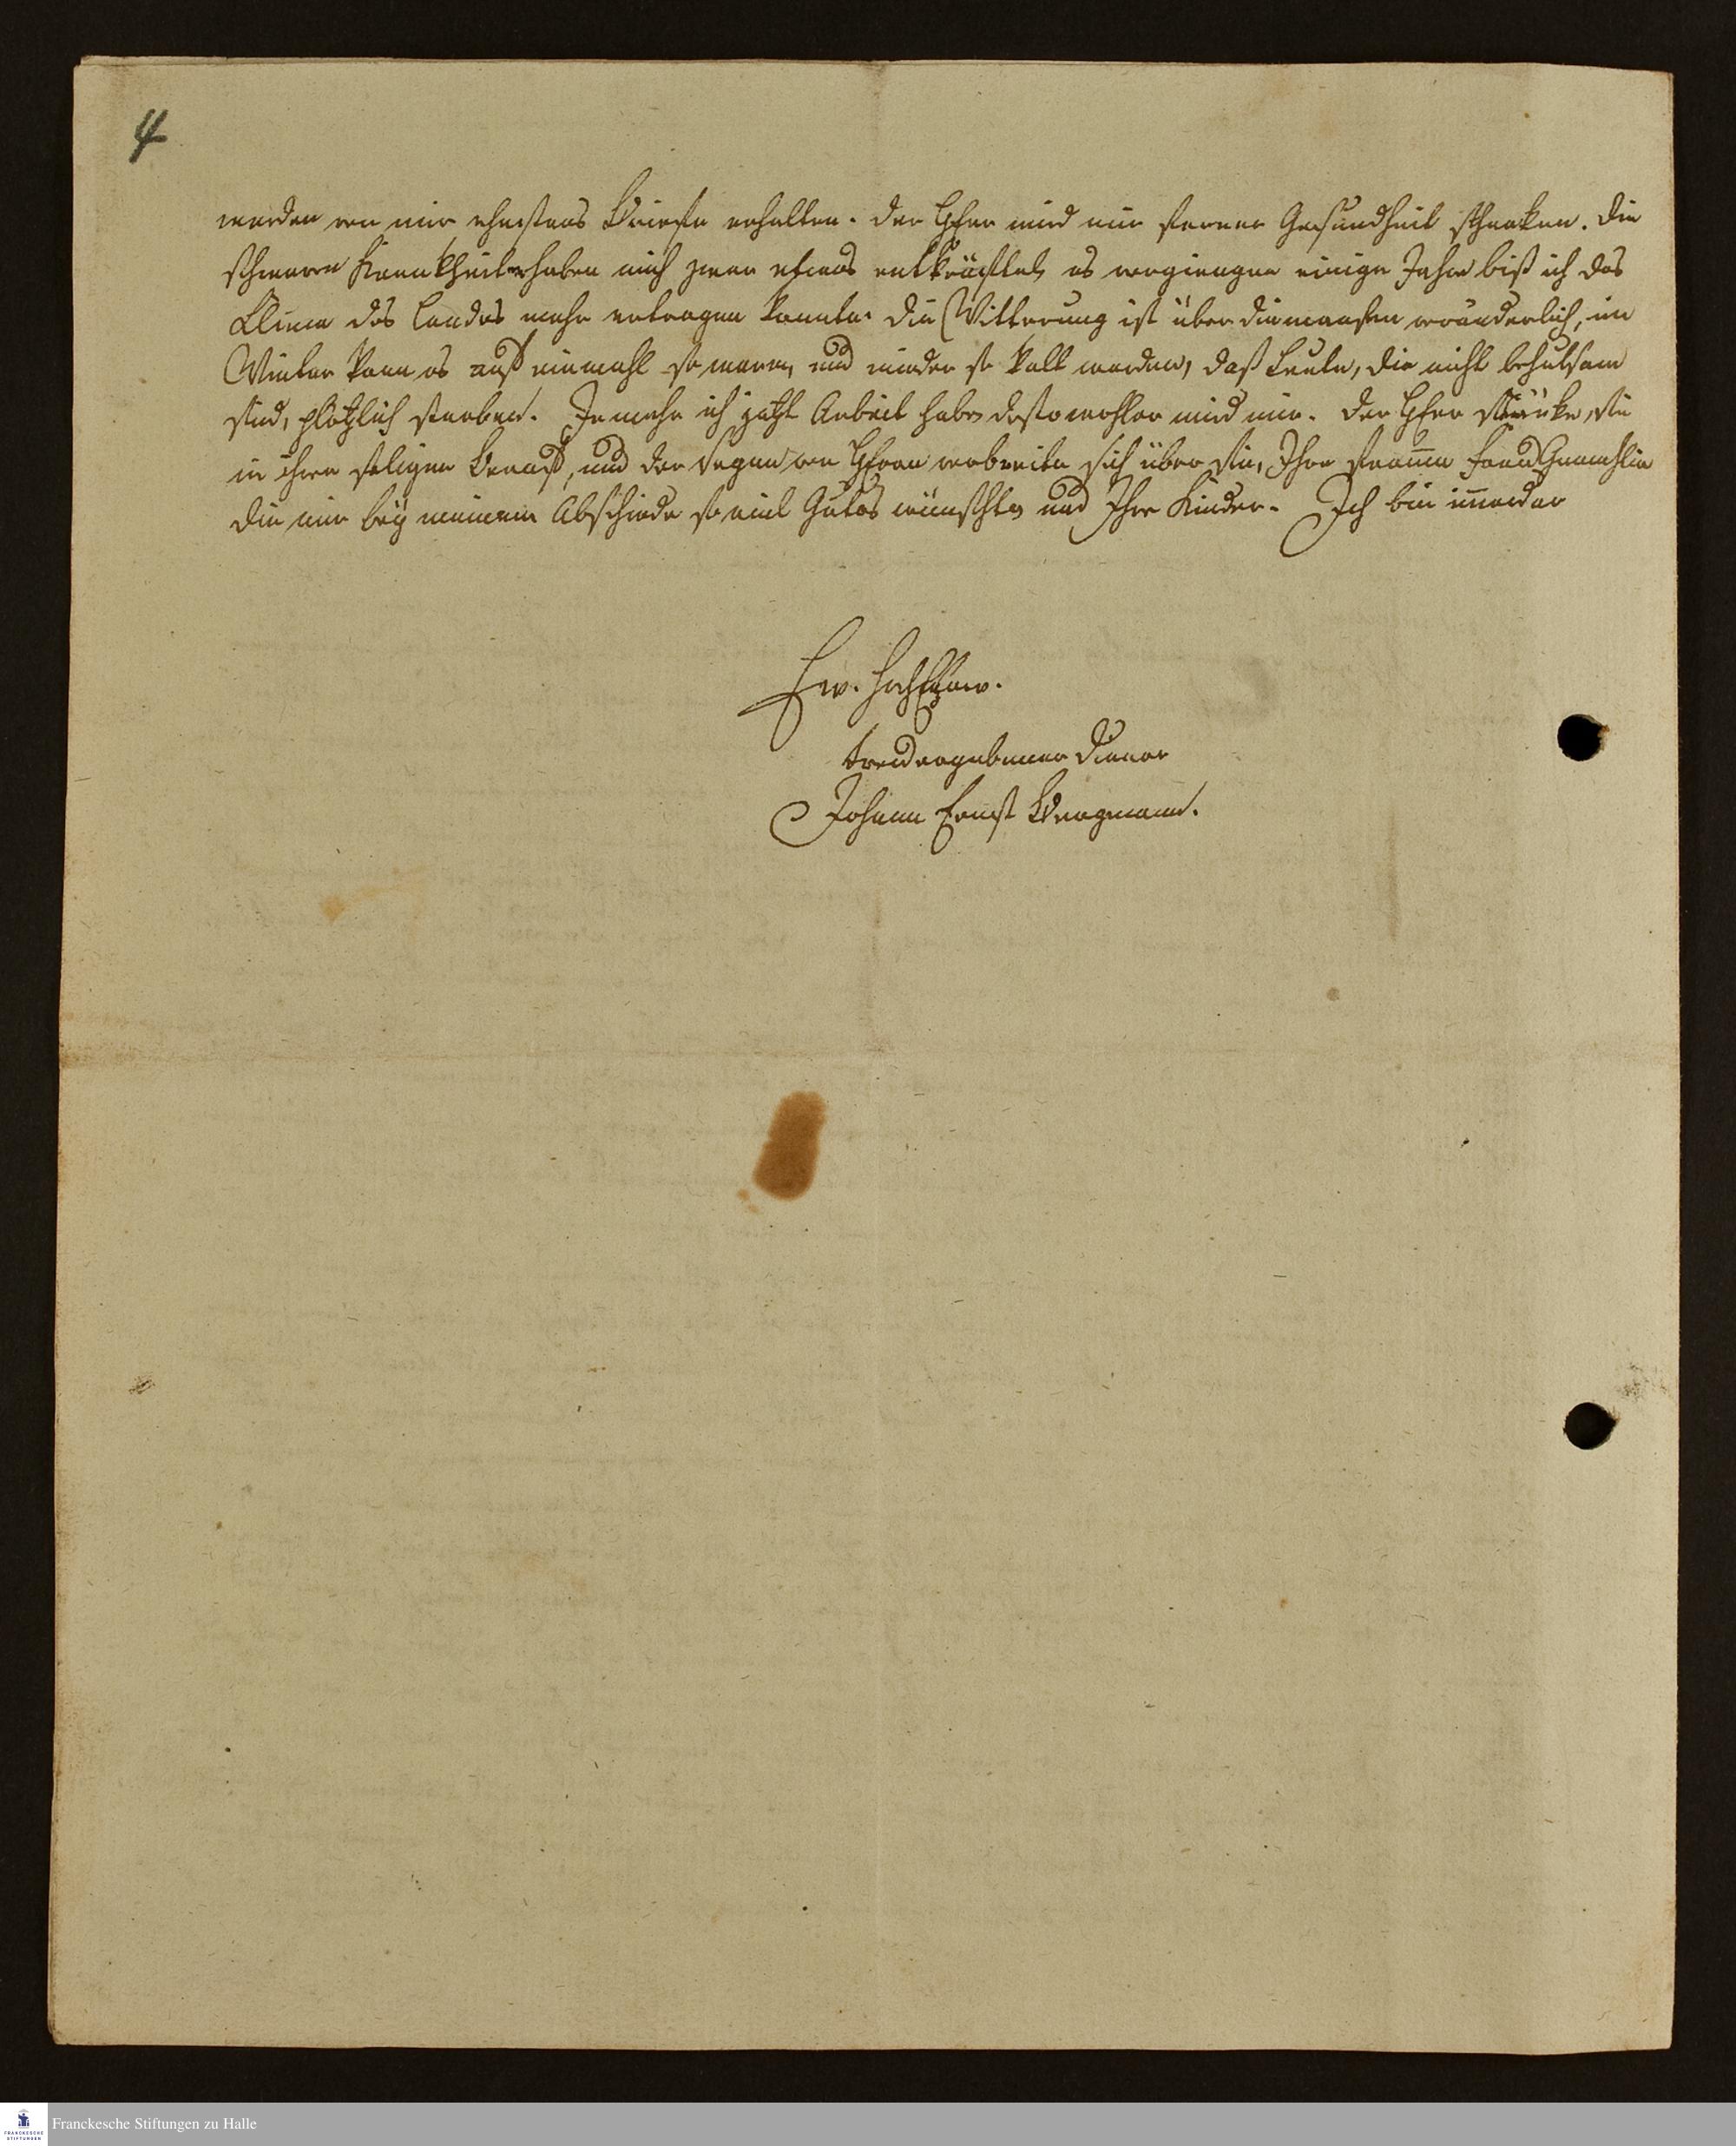 4
werden von mir ehestens Briefe erhalten. Der HErr wird mir ferner Gesundheit schenken. Die
schweren Krankheiten haben mich zwar etwas entkräftet, es vergiengen einige Jahre biß ich das
Clima des Landes mehr ertragen konnte. Die Witterung ist über die maaßen veränderlich, im
Winter kann es auf einmahl so warm, und wieder so kalt werden, daß Leute, die nicht behutsam
sind, plötzlich sterben. Je mehr ich jetzt Arbeit habe, desto wohler wird mir. Der HErr stärke Sie
in ihrem seligen Beruf, und der Segen vom HErrn verbreite sich über Sie, Ihre fromme Frau Gemahlin
die mir bey meinem Abschiede so viel Gutes wünschte, und Ihre Kinder. Ich bin immerdar
Ew. HochEhrw.
treu ergebener Diener
Johann Ernst Bergmann.
Franckesche Stiftungen zu Halle
FRANCKESCHE
STIFTUNGEN